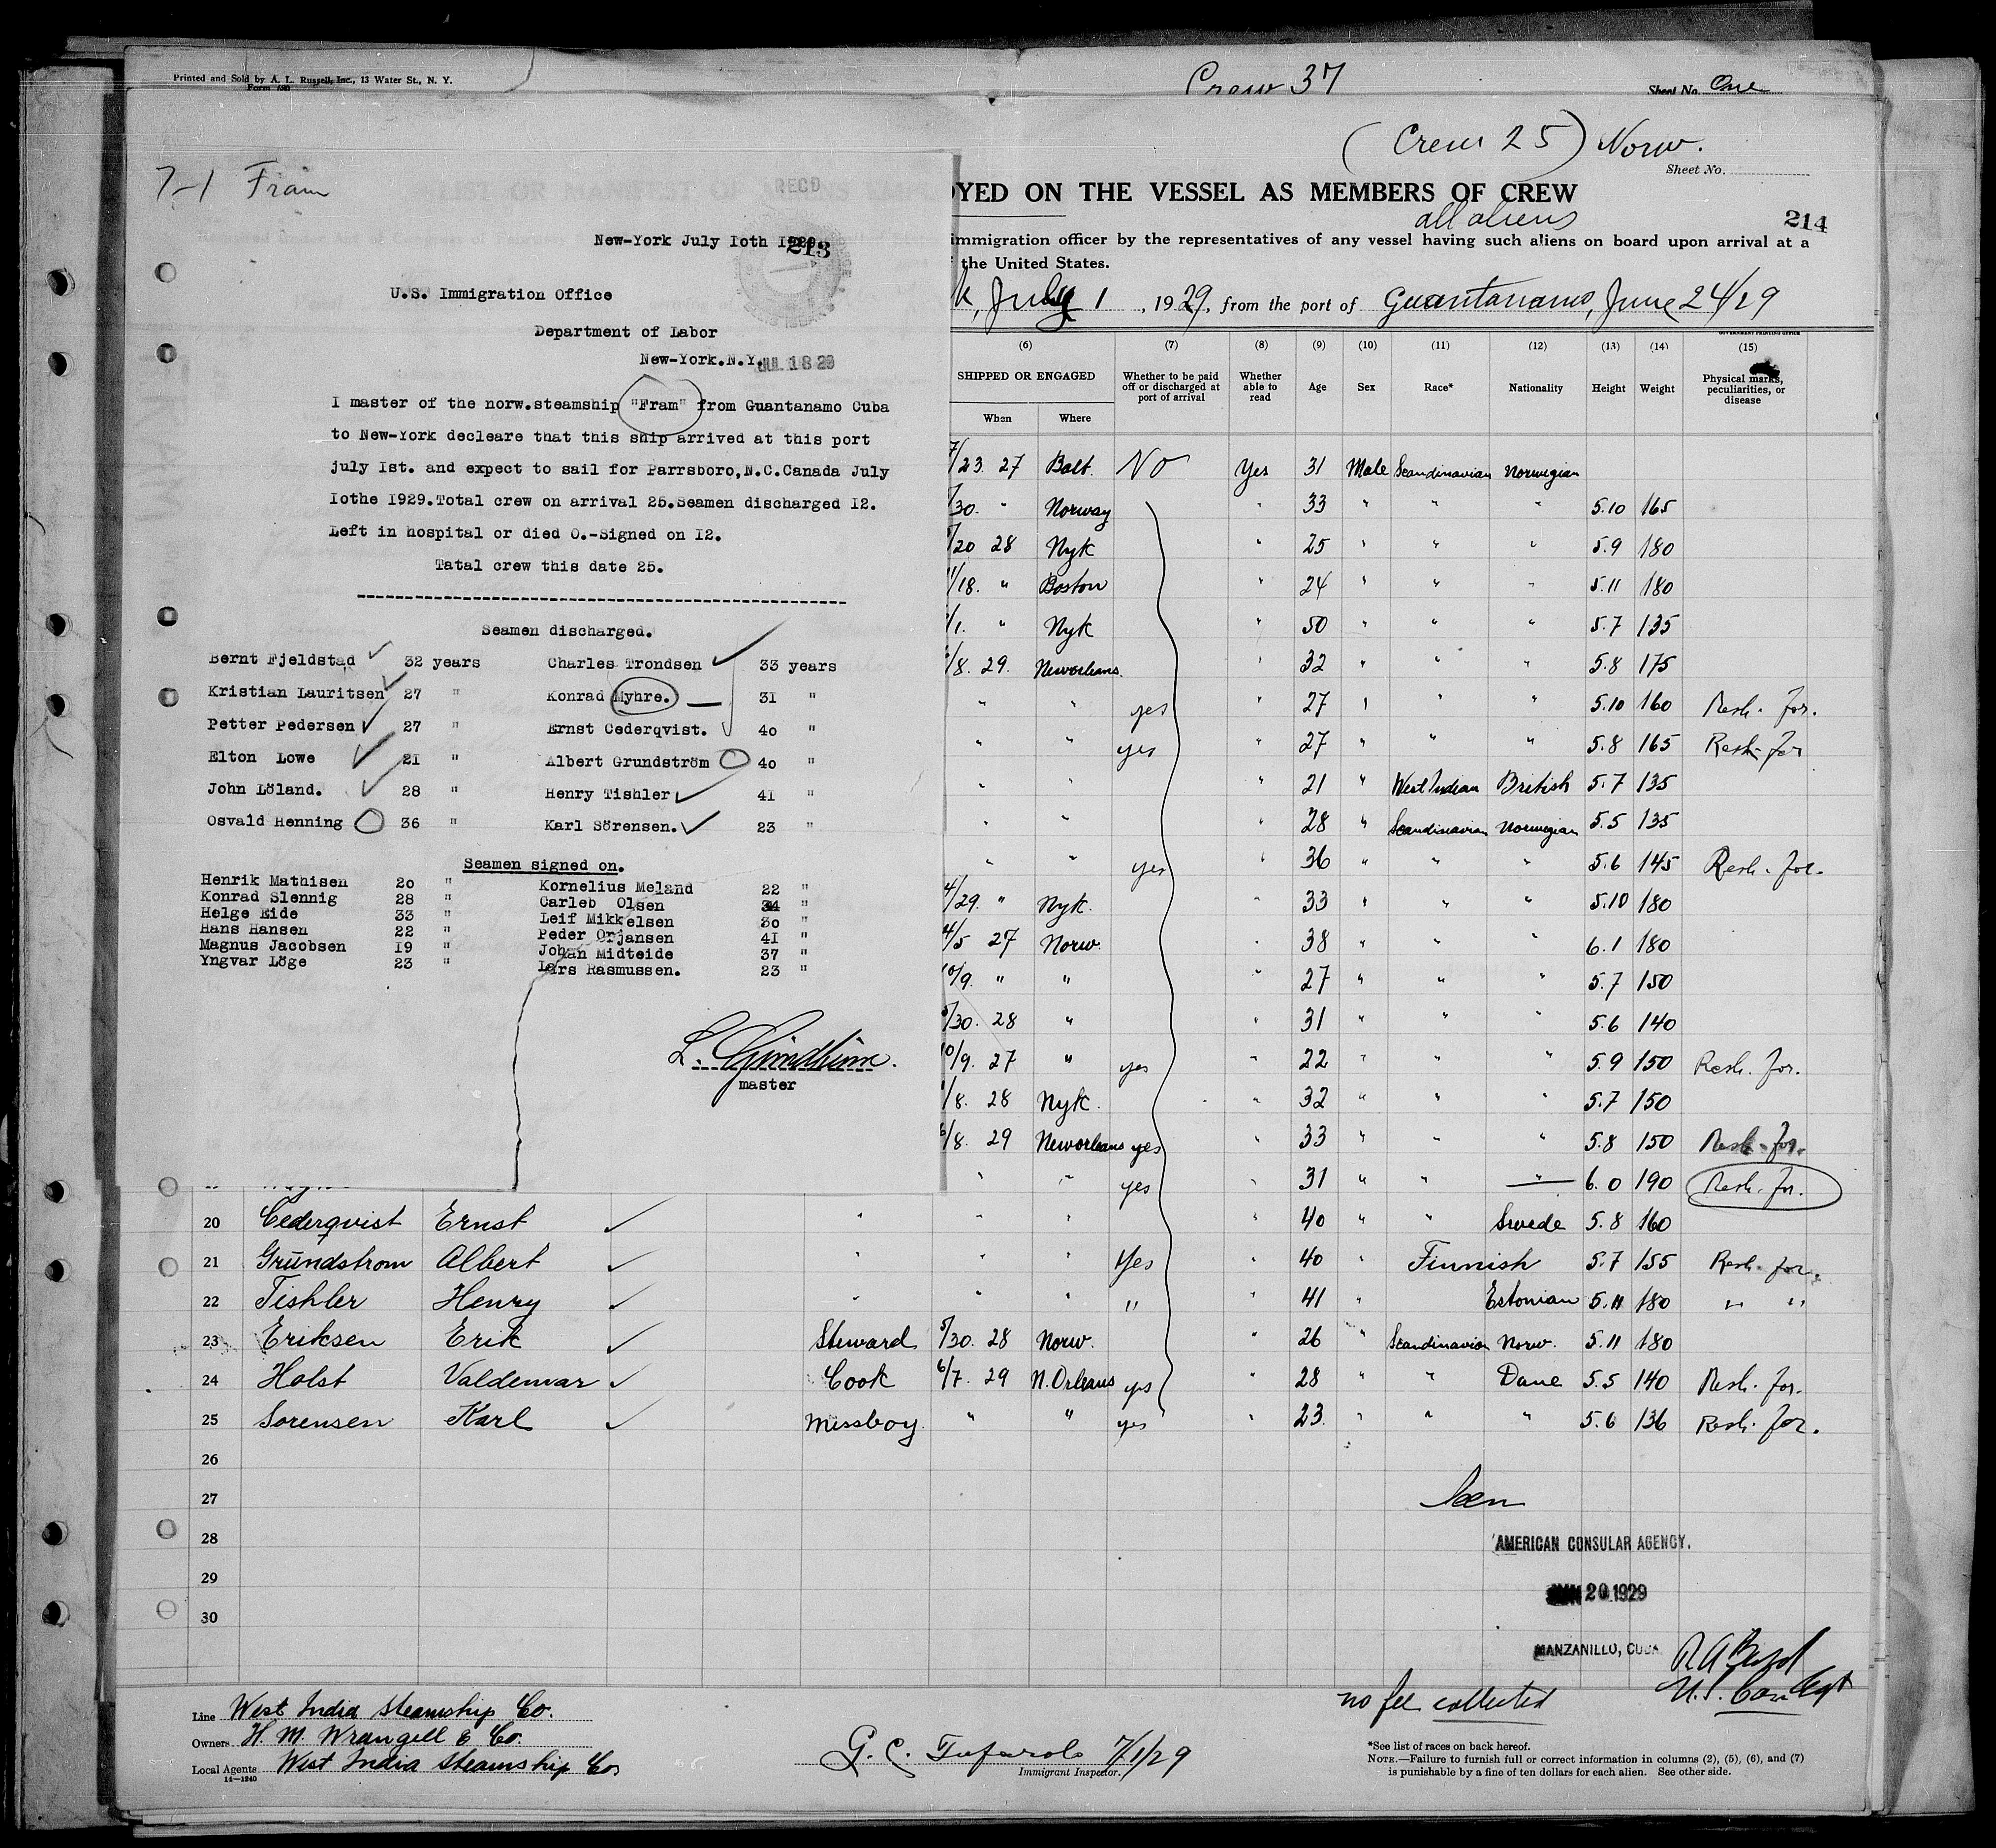 Printed and Sold by A. L. Russell, Inc., 13 Water St., N. Y.
Form 680
Crew 37
Sheet No. One
(Crew 25) Norw.
Sheet No.
7-1 Fram
REC'D
New-York July Ioth I929
213
U.S. Immigration Office
Department of Labor
New-York.N.Y.
JUL 18 29
I master of the norw.steamship "Fram" from Guantanamo Cuba
to New-York decleare that this ship arrived at this port
july Ist. and expect to sail for Parrsboro,N.C.Canada July
Iothe I929.Total crew on arrival 25.Seamen discharged I2.
Left in hospital or died O.-Signed on I2.
Tatal crew this date 25.
Seamen discharged.
Bernt Fjeldstad 32 years Charles Trondsen 33 years
Kristian Lauritsen 27 " Konrad Myhre. 31 "
Petter Pedersen 27 " Ernst Cederqvist. 40 "
Elton Lowe 21 " Albert Grundström 40 "
John Löland. 28 " Henry Tishler 41 "
Osvald Henning 36 " Karl Sörensen. 23 "
Seamen signed on.
Henrik Mathisen 20 " Kornelius Meland 22 "
Konrad Slennig 28 " Carleb Olsen 34 "
Helge Eide 33 " Leif Mikkelsen 30 "
Hans Hansen 22 " Peder Orjansen 41 "
Magnus Jacobsen 19 " Johan Midteide 37 "
Yngvar Löge 23 " Lars Rasmussen. 23 "
L.
master
OYED ON THE VESSEL AS MEMBERS OF CREW
all aliens
214
immigration officer by the representatives of any vessel having such aliens on board upon arrival at a
the United States.
k, July 1, 1929, from the port of Guantanamo, June 24/29
GOVERNMENT PRINTING OFFICE
(6) (7) (8) (9) (10) (11) (12) (13) (14) (15)
SHIPPED OR ENGAGED
When Where
Whether to be paid off or discharged at port of arrival
Whether able to read
Age Sex Race* Nationality Height Weight
Physical marks, peculiarities, or disease
7/23. 27 Balt. No Yes 31 Male Scandinavian Norwegian
/30. " Norway " 33 " " " 5.10 165
/20 28 Nyk " 25 " " " 5.9 180
11/18. " Boston " 24 " " " 5.11 180
/1. " Nyk " 50 " " " 5.7 135
/8. 29. Neworleans. " 32 " " " 5.8 175
" " yes " 27 " " " 5.10 160 Resh. for.
" " yes " 27 " " " 5.8 165 Resh. for
" " " 21 " West Indian British 5.7 135
" " " 28 " Scandinavian Norwegian 5.5 135
" " yes " 36 " " " 5.6 145 Resh. for.
4/29. " Nyk. " 33 " " " 5.10 180
4/5 27 Norw. " 38 " " " 6.1 180
10/9. " " " 27 " " " 5.7 150
/30. 28 " " 31 " " " 5.6 140
10/9. 27 " yes " 22 " " " 5.9 150 Resh. for.
/8. 28 Nyk. " 32 " " " 5.7 150
6/8. 29 Neworleans yes " 33 " " " 5.8 150 Resh. for.
" " yes " 31 " " " 6.0 190 Resh. for.
20 Cederqvist Ernst " " " " 40 " " Swede 5.8 160
21 Grundstrom Albert " " " Yes " 40 " Finnish 5.7 155 Resh. for.
22 Tishler Henry " " " " " 41 " Estonian 5.11 180 " "
23 Eriksen Erik Steward 5/30. 28 Norw. " 26 " Scandinavian Norw. 5.11 180
24 Holst Valdemar Cook 6/7. 29 N.Orleans yes " 28 " " Dane 5.5 140 Resh. for.
25 Sorensen Karl Missboy. " " yes " 23. " " " 5.6 136 Resh. for.
26
27
Seen
28
AMERICAN CONSULAR AGENCY.
29
JUN 20 1929
30
MANZANILLO, CUBA
no fee collected
Line West India Steamship Co.
Owners H. M. Wrangell & Co.
Local Agents West India Steamship Co
14—1240
G. C. Tufarolo 7/1/29
Immigrant Inspector.
*See list of races on back hereof.
NOTE.—Failure to furnish full or correct information in columns (2), (5), (6), and (7)
is punishable by a fine of ten dollars for each alien. See other side.